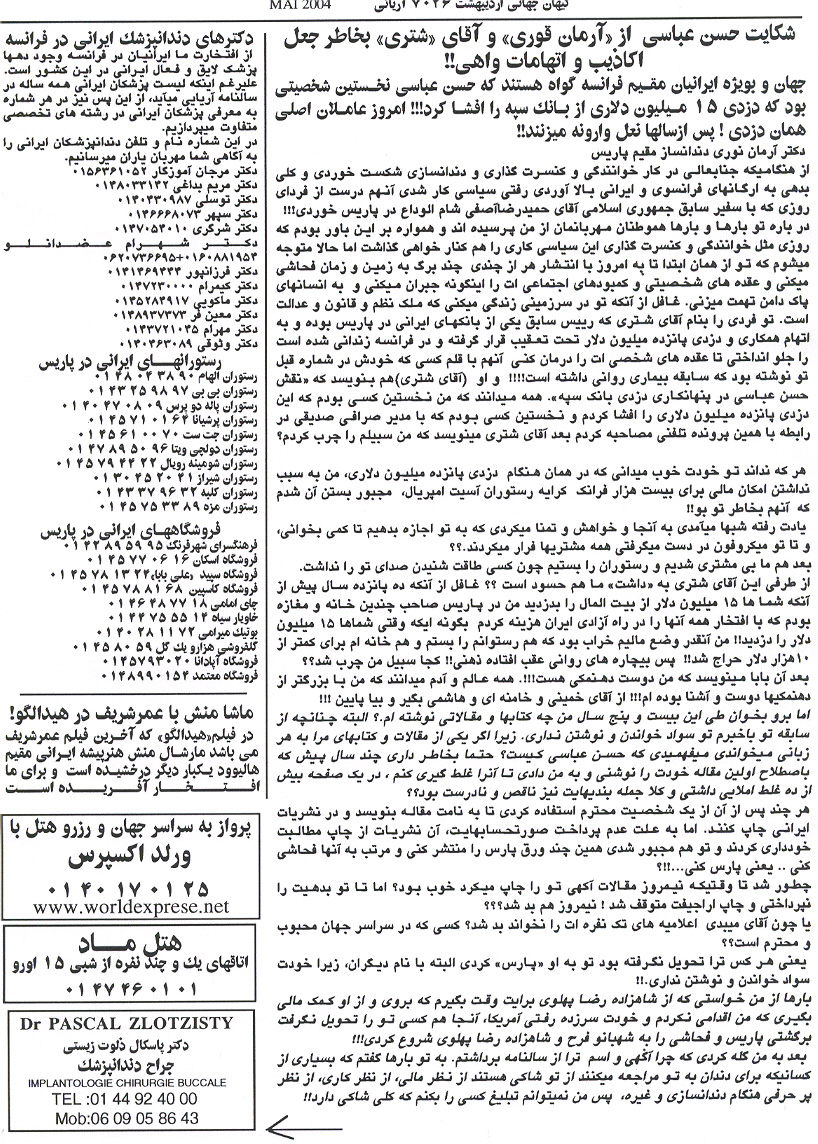 کیهان جهانی اردیبهشت ۷۰۲۶ آریائی
MAI 2004
شکایت حسن عباسی از «آرمان قوری» و آقای «شتری» بخاطر جعل
اکاذیب و اتهامات واهی!!
جهان و بویژه ایرانیان مقیم فرانسه گواه هستند که حسن عباسی نخستین شخصیتی
بود که دزدی ۱۵ میلیون دلاری از بانک سپه را افشا کرد!!! امروز عاملان اصلی
همان دزدی ! پس ازسالها نعل وارونه میزنند!!
دکتر آرمان نوری دندانساز مقیم پاریس
از هنگامیکه جنابعالی در کار خوانندگی و کنسرت گذاری و دندانسازی شکست خوردی و کلی
بدهی به ارگانهای فرانسوی و ایرانی بالا آوردی رفتی سیاسی کار شدی آنهم درست از فردای
روزی که با سفیر سابق جمهوری اسلامی آقای حمیدرضاآصفی شام الوداع در پاریس خوردی!!!
در باره تو بارها و بارها هموطنان مهربانمان از من پرسیده اند و همواره بر این باور بودم که
روزی مثل خوانندگی و کنسرت گذاری این سیاسی کاری را هم کنار خواهی گذاشت اما حالا متوجه
میشوم که تو از همان ابتدا تا به امروز با انتشار هر از چندی چند برگ به زمین و زمان فحاشی
میکنی و عقده های شخصیتی و کمبودهای اجتماعی ات را اینگونه جبران میکنی و به انسانهای
پاک دامن تهمت میزنی. غافل از آنکه تو در سرزمینی زندگی میکنی که ملک نظم و قانون و عدالت
است. تو فردی را بنام آقای شتری که رییس سابق یکی از بانکهای ایرانی در پاریس بوده و به
اتهام همکاری و دزدی پانزده میلیون دلار تحت تعقیب قرار گرفته و در فرانسه زندانی شده است
را جلو انداختی تا عقده های شخصی ات را درمان کنی آنهم با قلم کسی که خودش در شماره قبل
تو نوشته بود که سابقه بیماری روانی داشته است!!!! و او (آقای شتری)هم بنویسد که «نقش
حسن عباسی در پنهانکاری دزدی بانک سپه». همه میدانند که من نخستین کسی بودم که این
دزدی پانزده میلیون دلاری را افشا کردم و نخستین کسی بودم که با مدیر صرافی صدیقی در
رابطه با همین پرونده تلفنی مصاحبه کردم بعد آقای شتری مینویسد که من سبیلم را چرب کردم؟
هر که نداند تو خودت خوب میدانی که در همان هنگام دزدی پانزده میلیون دلاری، من به سبب
نداشتن امکان مالی برای بیست هزار فرانک کرایه رستوران آسیت امپریال، مجبور بستن آن شدم
که آنهم بخاطر تو بو!!
یادت رفته شبها میآمدی به آنجا و خواهش و تمنا میکردی که به تو اجازه بدهیم تا کمی بخوانی،
و تا تو میکروفون در دست میگرفتی همه مشتریها فرار میکردند.؟؟
بعد هم ما بی مشتری شدیم و رستوران را بستیم چون کسی طاقت شنیدن صدای تو را نداشت.
از طرفی این آقای شتری به «داشت» ما هم حسود است ؟؟ غافل از آنکه ده پانزده سال پیش از
آنکه شما ها ۱۵ میلیون دلار از بیت المال را بدزدید من در پاریس صاحب چندین خانه و مغازه
بودم که با افتخار همه آنها را در راه آزادی ایران هزینه کردم بگونه ایکه وقتی شماها ۱۵ میلیون
دلار را دزدید!! من آنقدر وضع مالیم خراب بود که هم رستوانم را بستم و هم خانه ام برای کمتر از
۱۰هزار دلار حراج شد!! پس بیچاره های روانی عقب افتاده ذهنی!! کجا سبیل من چرب شد؟؟
بعد آن بابا مینویسد که من دوست دهنمکی هست!!!. همه عالم و آدم میدانند که من با بزرگتر از
دهنمکیها دوست و آشنا بوده ام!!! از آقای خمینی و خامنه ای و هاشمی بگیر و بیا پایین !!!
اما برو بخوان طی این بیست و پنج سال من چه کتابها و مقالاتی نوشته ام.؟ البته چنانچه از
سابقه تو باخبرم تو سواد خواندن و نوشتن نداری. زیرا اگر یکی از مقالات و کتابهای مرا به هر
زبانی میخواندی میفهمیدی که حسن عباسی کیست؟ حتما بخاطر داری چند سال پیش که
باصطلاح اولین مقاله خودت را نوشتی و به من دادی تا آنرا غلط گیری کنم ، در یک صفحه بیش
از ده غلط املایی داشتی و کلا جمله بندیهایت نیز ناقص و نادرست بود؟؟
هر چند پس از آن از یک شخصیت محترم استفاده کردی تا به نامت مقاله بنویسد و در نشریات
ایرانی چاپ کنند. اما به علت عدم پرداخت صورتحسابهایت، آن نشریات از چاپ مطالبت
خودداری کردند و تو هم مجبور شدی همین چند ورق پارس را منتشر کنی و مرتب به آنها فحاشی
کنی .. یعنی پارس کنی...!!؟
چطور شد تا وقتیکه نیمروز مقالات آکهی تو را چاپ میکرد خوب بود؟ اما تا تو بدهیت را
نپرداختی و چاپ اراجیفت متوقف شد ! نیمروز هم بد شد؟؟؟
یا چون آقای میبدی اعلامیه های تک نفره ات را نخواند بد شد؟ کسی که در سراسر جهان محبوب
و محترم است؟؟
یعنی هر کس ترا تحویل نگرفته بود تو به او «پارس» کردی البته با نام دیگران، زیرا خودت
سواد خواندن و نوشتن نداری.!!
بارها از من خواستی که از شاهزاده رضا پهلوی برایت وقت بگیرم که بروی و از او کمک مالی
بگیری که من اقدامی نکردم و خودت سرزده رفتی آمریکا، آنجا هم کسی تو را تحویل نگرفت
برگشتی پاریس و فحاشی را به شهبانو فرح و شاهزاده رضا پهلوی شروع کردی!!!
بعد به من گله کردی که چرا آگهی و اسم ترا از سالنامه برداشتم. به تو بارها گفتم که بسیاری از
کسانیکه برای دندان به تو مراجعه میکنند از تو شاکی هستند از نظر مالی، از نظر کاری، از نظر
پر حرفی هنگام دندانسازی و غیره، پس من نمیتوانم تبلیغ کسی را بکنم که کلی شاکی دارد!!
دکترهای دندانپزشک ایرانی در فرانسه
از افتخارت ما ایرانیان در فرانسه وجود دهها
پزشک لایق و فعال ایرانی در این کشور است.
علیرغم اینکه لیست پزشکان ایرانی همه ساله در
سالنامه آریایی میآید، از این پس نیز در هر شماره
به معرفی پزشکان ایرانی در رشته های تخصصی
متفاوت میپردازیم.
در این شماره نام و تلفن دندانپزشکان ایرانی را
به آگاهی شما مهربان یاران میرسانیم.
دکتر مرجان آموزگار ۰۱۵۶۳۶۱۰۵۲
دکتر مریم بداغی ۰۱۴۸۰۳۳۱۳۲
دکتر توسلی ۰۱۴۰۴۳۰۹۸۷
دکتر سپهر ۰۱۴۶۶۶۸۰۷۳
دکتر شرکری ۰۱۴۷۰۵۳۰۱۰
دکتر شهرام عضدانلو
۰۱۶۰۸۸۱۹۵۴+۰۶۲۰۷۳۶۶۹۵
دکتر فرزانپور ۰۱۴۱۴۶۹۴۴۴
دکتر کیمرام ۰۱۴۷۲۳۰۰۰۰
دکتر ماکویی ۰۱۴۵۲۸۴۹۱۷
دکتر معین فر ۰۱۴۸۹۳۷۳۷۳
دکتر مهرام ۰۱۴۳۷۲۱۰۴۵
دکتر وثوقی ۰۱۴۰۴۶۳۰۸۹
رستورانهــای ایرانی در پاریس
رستوران الهام ۰۱ ۴۸ ۰۴ ۳۸ ۹۰
رستوران بی بی ۰۱ ۴۳ ۲۵ ۹۸ ۹۷
رستوران پاله دو پرس ۰۱ ۴۰ ۴۷ ۰۸ ۰۹
رستوران پرشیانا ۰۱ ۴۵ ۷۱ ۰۱ ۶۴
رستوران جت ست ۰۱ ۴۵ ۶۱ ۰۰ ۷۰
رستوران دولچی ویتا ۰۱ ۴۷ ۸۹ ۵۰ ۹۶
رستوران شومینه رویال ۰۱ ۴۵ ۷۹ ۴۴ ۲۲
رستوران شیراز ۰۱ ۳۰ ۴۵ ۲۰ ۴۱
رستوران کلبه ۰۱ ۴۳ ۳۷ ۹۶ ۳۲
رستوران مزه ۰۱ ۴۵ ۷۵ ۳۳ ۸۹
فروشگاههــای ایرانی در پاریس
فرهنگسرای شهرفرنگ ۰۱ ۴۲ ۸۹ ۵۹ ۹۵
فروشگاه اسکان ۰۱ ۴۵ ۷۷ ۰۶ ۱۶
فروشگاه سپید «علی بابا» ۰۱ ۴۵ ۷۸ ۱۳ ۲۴
فروشگاه کاسپین ۰۱ ۴۵ ۷۸ ۸۱ ۶۸
چای امامی ۰۱ ۴۶ ۴۸ ۷۷ ۱۸
خاویار سیاه ۰۱ ۴۴ ۷۵ ۵۵ ۱۴
بوتیک میرامی ۰۱ ۴۰ ۲۸ ۱۱ ۷۲
گلفروشی هزارو یک گل ۰۱ ۴۵ ۸۰ ۵۹
فروشگاه آپادانا ۰۱۴۵۷۹۳۰۲۰
فروشگاه معتمد ۰۱۴۸۹۹۰۱۵۴
ماشا منش با عمرشریف در هیدالگو!
در فیلم«هیدالگو» که آخرین فیلم عمرشریف
می باشد مارشال منش هنرپیشه ایرانی مقیم
هالیوود یکبار دیگر درخشیده است و برای ما
افتخار آفریده است
پرواز به سراسر جهان و رزرو هتل با
ورلد اکسپرس
۰۱ ۴۰ ۱۷ ۰۱ ۲۵
www.worldexprese.net
هتل مــاد
اتاقهای یک و چند نفره از شبی ۱۵ اورو
۰۱ ۴۷ ۴۶ ۰۱ ۰۱
Dr PASCAL ZLOTZISTY
دکتر پاسکال ذلوت زیستی
جراح دندانپزشک
IMPLANTOLOGIE CHIRURGIE BUCCALE
TEL :01 44 92 40 00
Mob:06 09 05 86 43